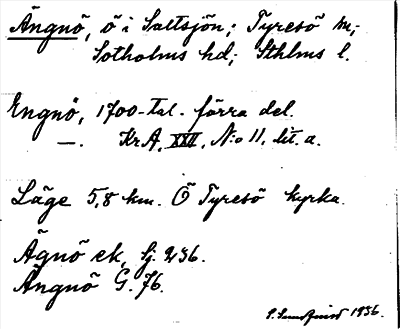 Ängnö, ö i Saltsjön; Tyresö sn;
Sotholms hd; Sthlms l.
Engnö, 1700-tal. förra del.
—. KrA, XXII, N:o 11, lit. a.
Läge 5,8 km. Ö Tyresö kyrka.
Ägnö ek, Sj. 236.
Ängnö G. 76.
1936.